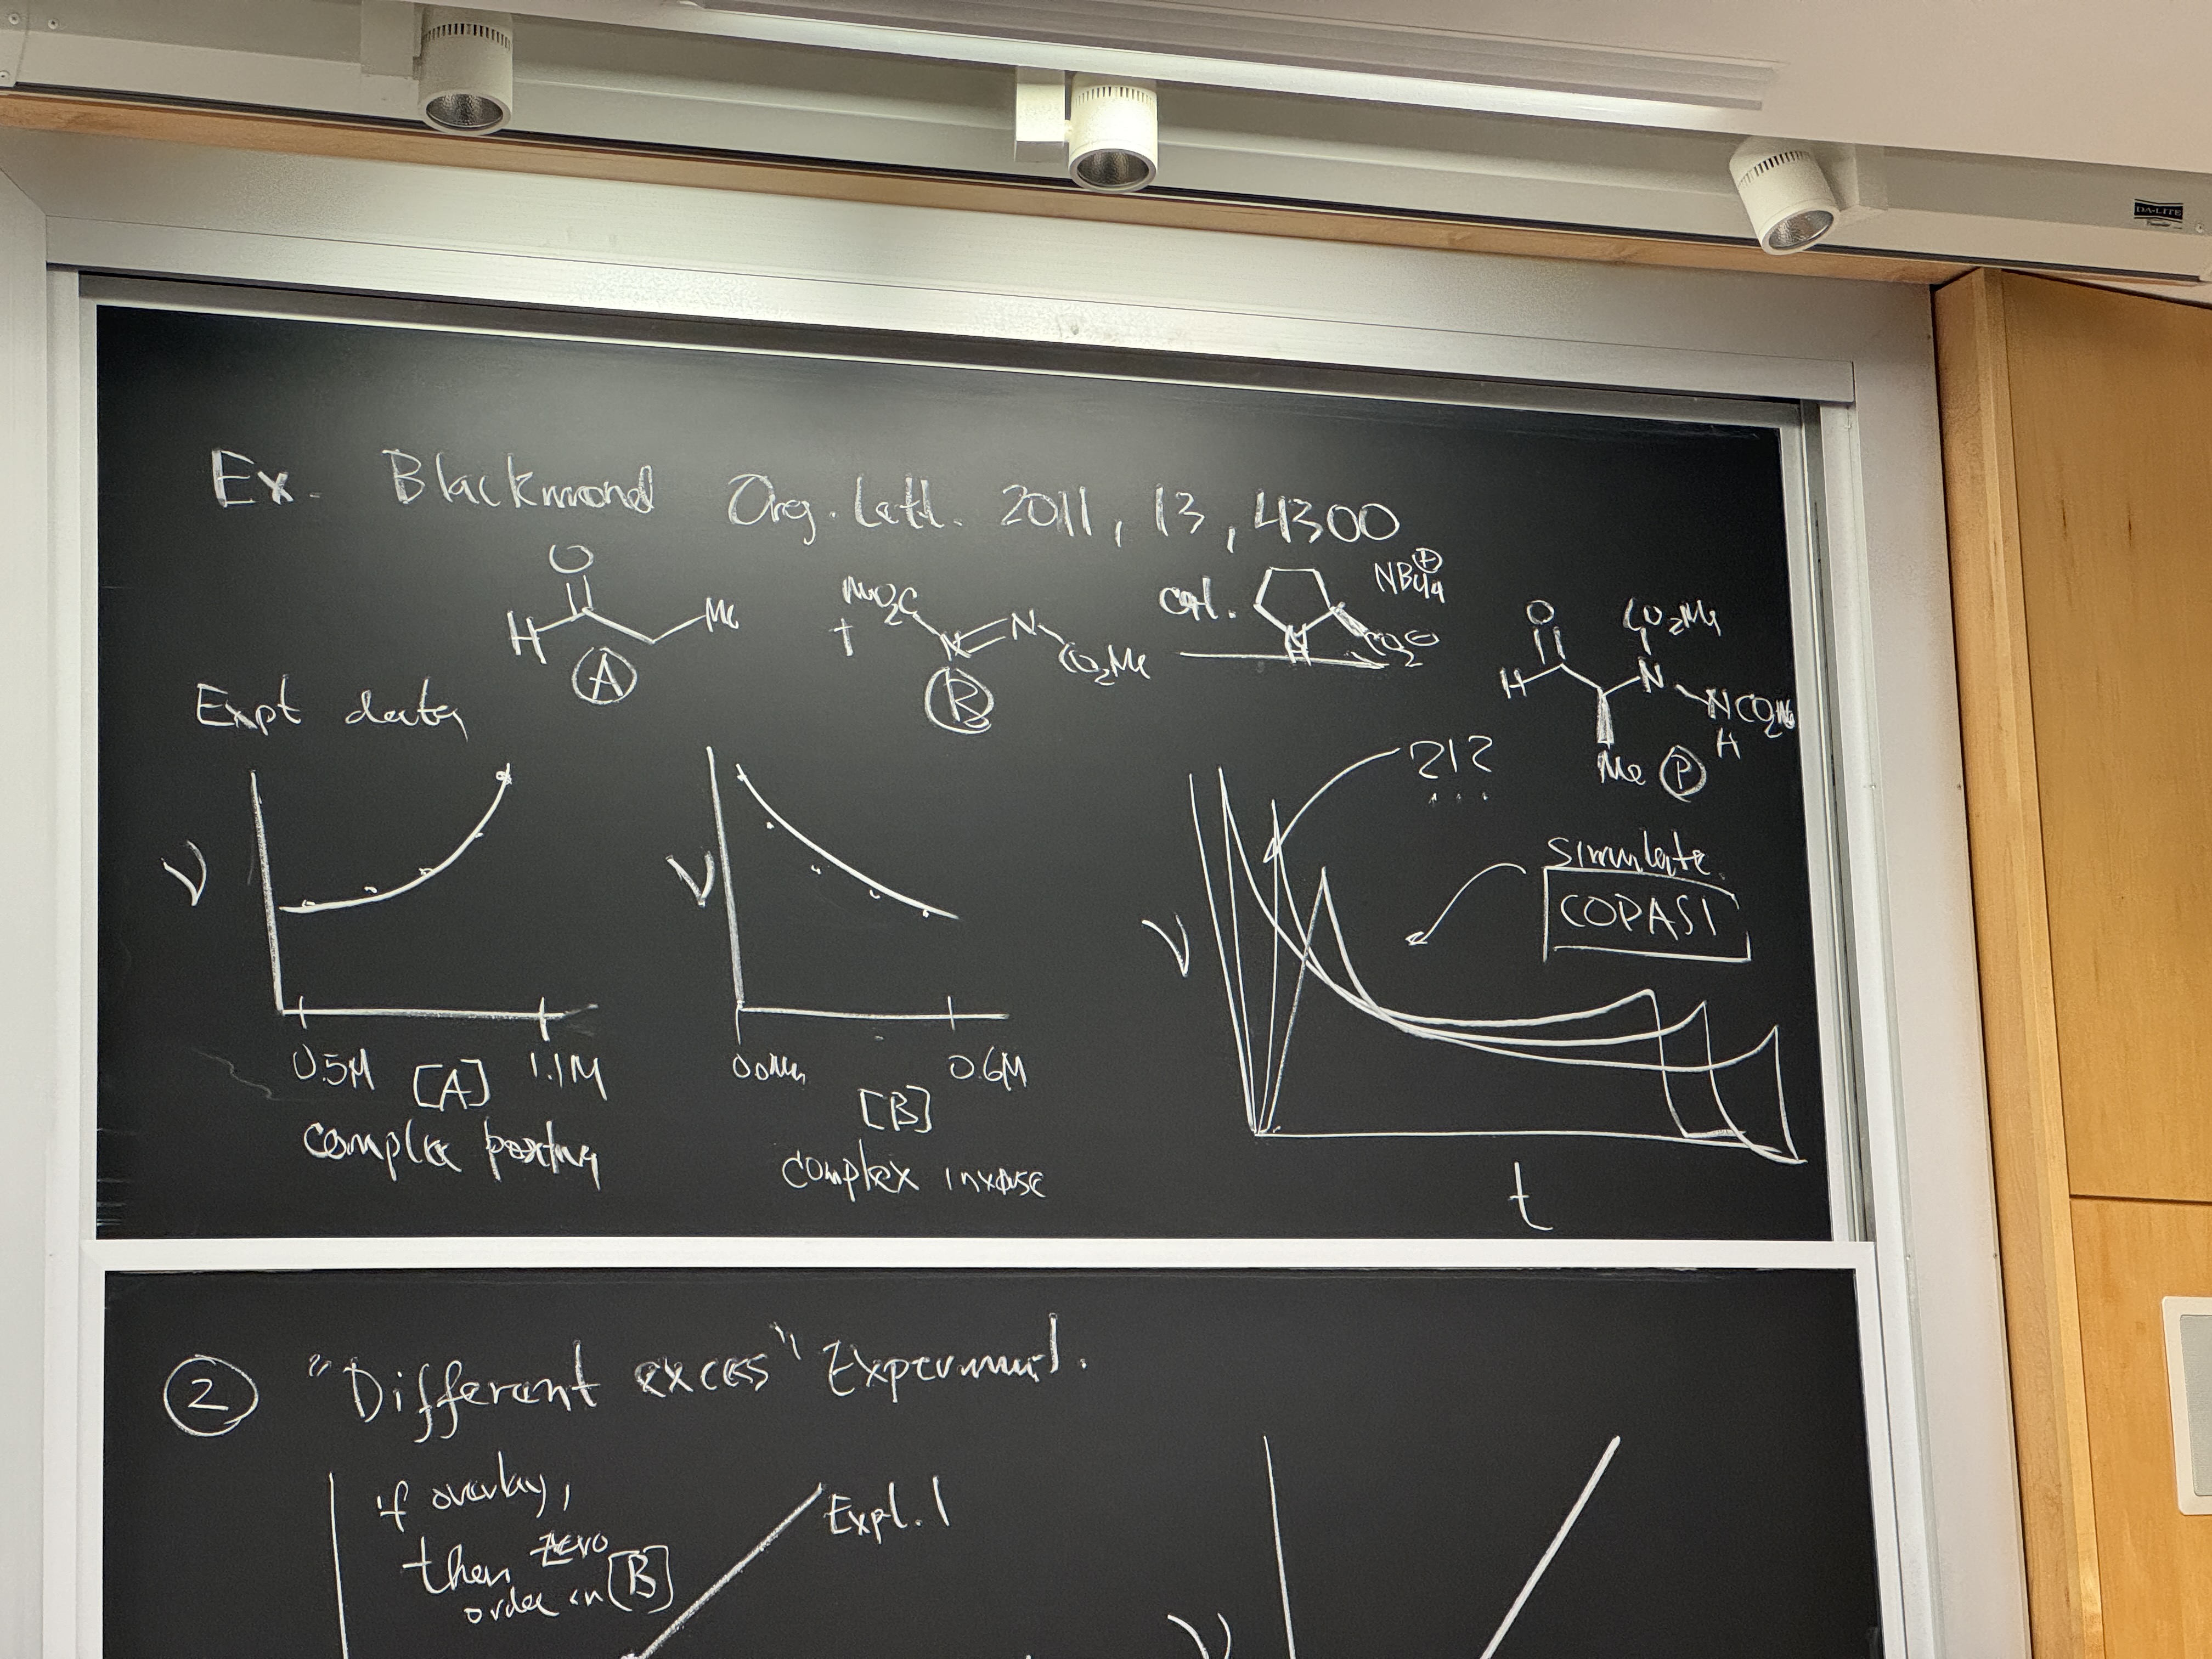 DA-LITE
Ex. Blackmond Org. Lett. 2011, 13, 4300
O
H
Me
A
+
MeO2C
N
N
CO2Me
B
cat.
N
H
CO2⊖
NBu4⊕
O
H
CO2Me
N
NCO2Me
H
Me
P
Expt data
V
0.5M [A] 1.1M
complex positive
V
0.6M
[B]
complex inverse
?!?
V
simulate
COPASI
t
2 "Different excess" Experiment.
if overlay,
then zero
order in [B]
Expt. 1
V